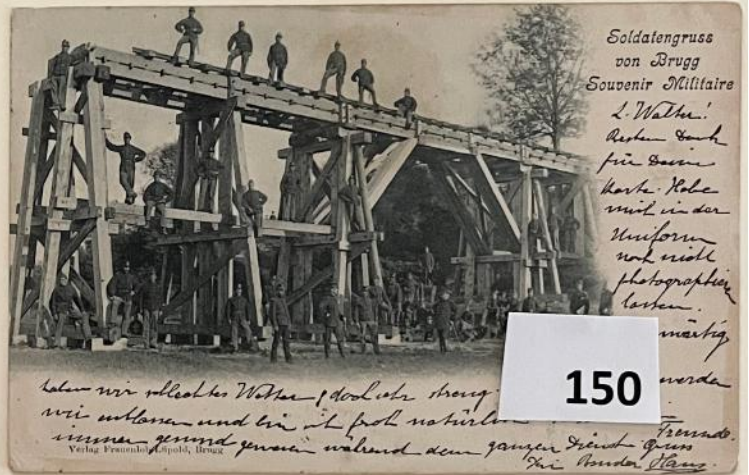 Soldatengruss
von Brugg
Souvenir Militaire
L. Walter!
Besten Dank
für Deine
Karte. Habe
mich in der
Uniform
noch nicht
photographieren
lassen.
150
haben wir schlechtes Wetter & doch sehr streng.
wir entlassen und bin ich froh natürlich Freunde.
immer gesund gewesen während dem ganzen Dienst. Gruss
Dein Bruder Hans.
Verlag Frauenlob-Effpold, Brugg